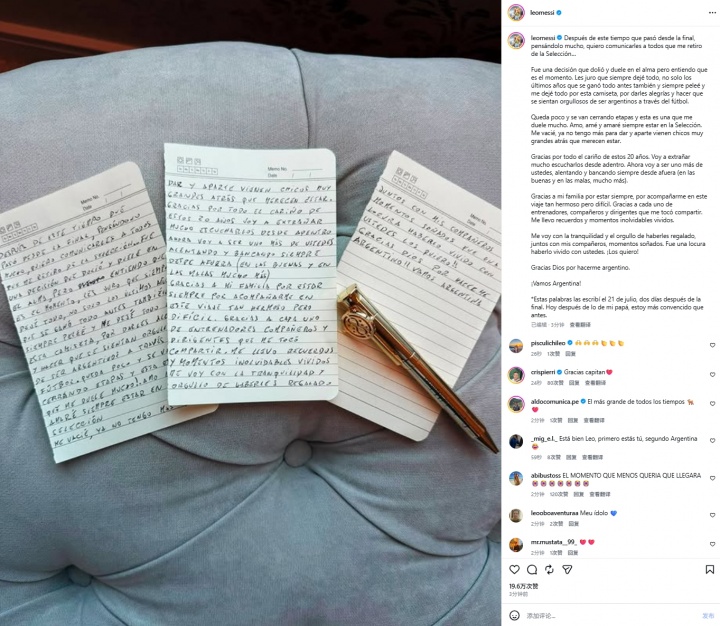 DESPUÉS DE ESTE TIEMPO QUE
PASÓ DESDE LA FINAL, PENSÁNDOLO
MUCHO, QUIERO COMUNICARLES A TODOS
QUE ME RETIRO DE LA SELECCIÓN... FUE
UNA DECISIÓN QUE DOLIÓ Y DUELE EN
EL ALMA, PERO ENTIENDO QUE
ES EL MOMENTO. LES JURO QUE SIEMPRE
DEJÉ TODO, NO SOLO LOS ÚLTIMOS AÑOS
QUE SE GANÓ TODO ANTES TAMBIÉN
SIEMPRE PELEÉ Y ME DEJÉ TODO POR
ESTA CAMISETA, POR DARLES ALEGRÍAS
Y HACER QUE SE SIENTAN ORGULLOSOS
DE SER ARGENTINOS A TRAVÉS
FÚTBOL. QUEDA POCO, Y SE V
CERRANDO ETAPAS Y ESTA
QUE ME DUELE MUCHO. AMO,
AMARÉ SIEMPRE ESTAR EN
SELECCIÓN
ME VACIÉ, YA NO TENGO MÁS
Memo No.
Date / /
DAR Y APARTE VIENEN CHICOS MUY
GRANDES ATRÁS QUE MERECEN ESTAR.
GRACIAS POR TODO EL CARIÑO DE
ESTOS 20 AÑOS. VOY A EXTRAÑAR
MUCHO ESCUCHARLOS DESDE ADENTRO
AHORA VOY A SER UNO MÁS DE USTEDES
ALENTANDO Y BANCANDO SIEMPRE
DESDE AFUERA (EN LAS BUENAS Y EN
LAS MALAS MUCHO MÁS)
GRACIAS A MI FAMILIA POR ESTAR
SIEMPRE POR ACOMPAÑARME EN
ESTE VIAJE TAN HERMOSO PERO
DIFÍCIL. GRACIAS A CADA UNO
DE ENTRENADORES COMPAÑEROS Y
DIRIGENTES QUE ME TOCÓ
COMPARTIR. ME LLEVO RECUERDOS
Y MOMENTOS INOLVIDABLES VIVIDOS
ME VOY CON LA TRANQUILIDAD Y
ORGULLO DE HABERLES REGALADO
Memo No.
Date /
JUNTOS CON MIS COMPAÑEROS
MOMENTOS SOÑADOS. FUE UNA
LOCURA HABERLO VIVIDO CON
USTEDES. LOS QUIERO!!
GRACIAS DIOS POR HACERME
ARGENTINO!! VAMOS ARGENTINA
leomessi
leomessi Después de este tiempo que pasó desde la final,
pensándolo mucho, quiero comunicarles a todos que me retiro
de la Selección...
Fue una decisión que dolió y duele en el alma pero entiendo que
es el momento. Les juro que siempre dejé todo, no solo los
últimos años que se ganó todo antes también y siempre peleé y
me dejé todo por esta camiseta, por darles alegrías y hacer que
se sientan orgullosos de ser argentinos a través del fútbol.
Queda poco y se van cerrando etapas y esta es una que me
duele mucho. Amo, amé y amaré siempre estar en la Selección.
Me vacié, ya no tengo más para dar y aparte vienen chicos muy
grandes atrás que merecen estar.
Gracias por todo el cariño de estos 20 años. Voy a extrañar
mucho escucharlos desde adentro. Ahora voy a ser uno más de
ustedes, alentando y bancando siempre desde afuera (en las
buenas y en las malas, mucho más).
Gracias a mi familia por estar siempre, por acompañarme en este
viaje tan hermoso pero difícil. Gracias a cada uno de
entrenadores, compañeros y dirigentes que me tocó compartir.
Me llevo recuerdos y momentos inolvidables vividos.
Me voy con la tranquilidad y el orgullo de haberles regalado,
juntos con mis compañeros, momentos soñados. Fue una locura
haberlo vivido con ustedes. ¡Los quiero!
Gracias Dios por hacerme argentino.
¡Vamos Argentina!
*Estas palabras las escribí el 21 de julio, dos días después de la
final. Hoy después de lo de mi papá, estoy más convencido que
antes.
已编辑 3分钟 查看翻译
pisculichileo
26秒 1次赞 回复
crispierri Gracias capitan
24秒 80次赞 回复 查看翻译
aldocomunica.pe El más grande de todos los tiempos
2分钟 1次赞 回复 查看翻译
_mig_e.l._ Está bien Leo, primero estás tú, segundo Argentina
59秒 8次赞 回复 查看翻译
abibustoss EL MOMENTO QUE MENOS QUERIA QUE LLEGARA
2分钟 120次赞 回复 查看翻译
leooboaventuraa Meu ídolo
2分钟 2次赞 回复
mr.mustata__99_
2分钟 1次赞 回复
19.6万次赞
3分钟前
添加评论...
发布